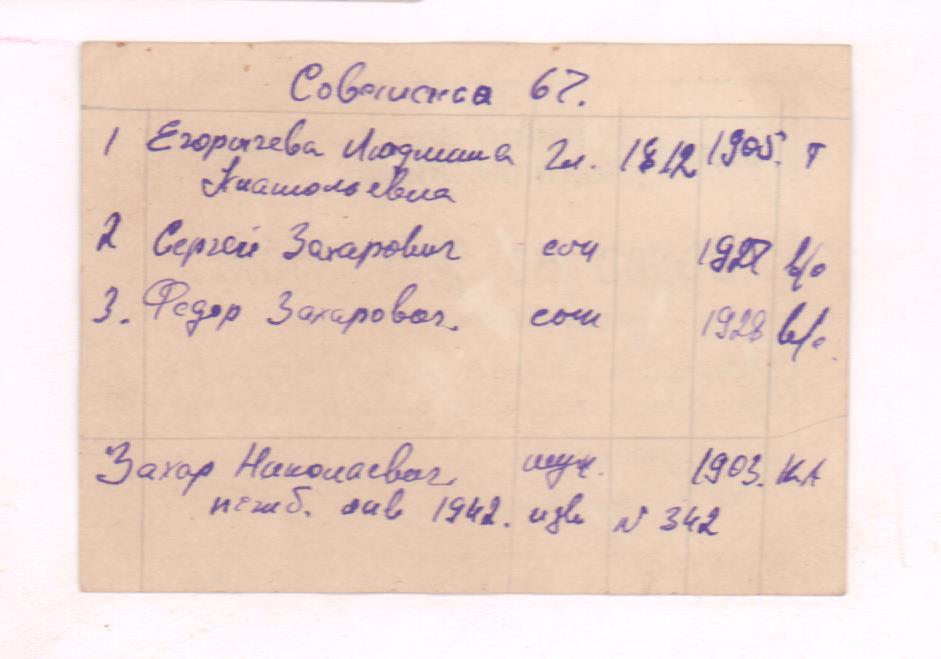 Советская 67.
1 Егорычева Людмила Гл. 18 12 1905. т
Анатольевна
2 Сергей Захарович сын в/о
3. Федор Захарович сын 1928 в/о.
Захар Николаевич муж. 1903. КА
погиб. янв 1942. изв N 342